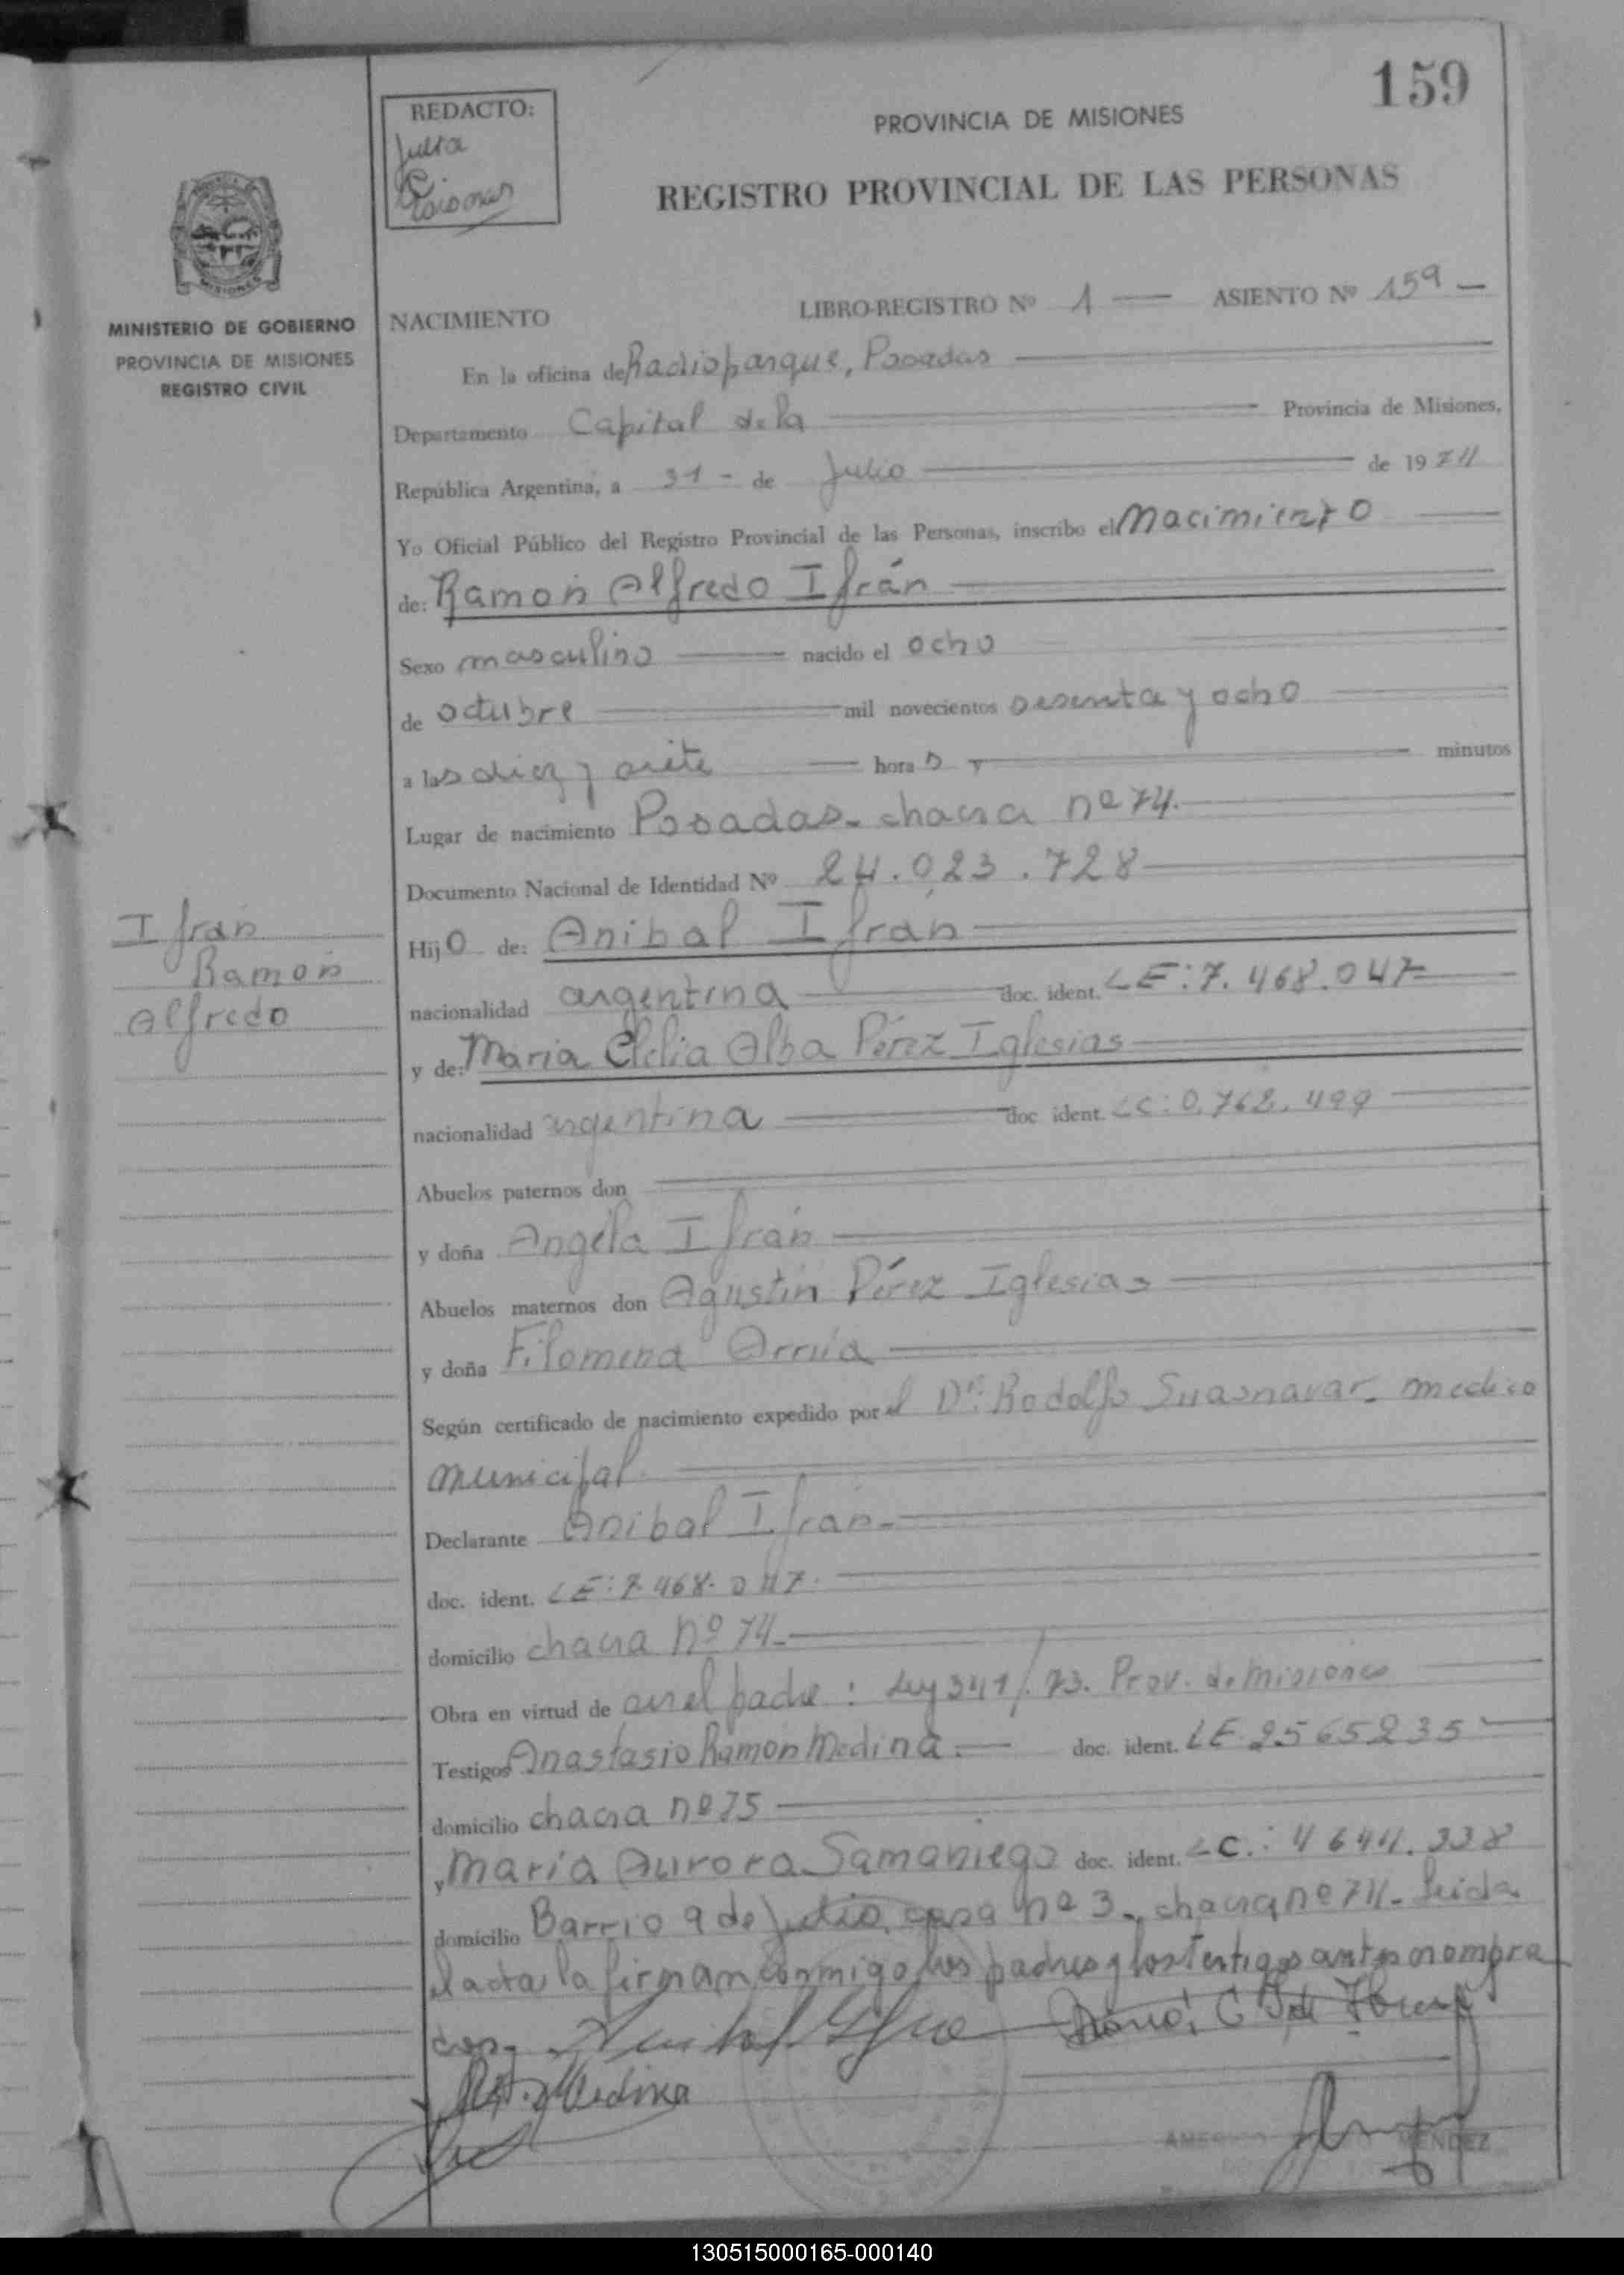 159
REDACTO:
Julia
PROVINCIA DE MISIONES
REGISTRO PROVINCIAL DE LAS PERSONAS
MISIONES
MINISTERIO DE GOBIERNO
PROVINCIA DE MISIONES
REGISTRO CIVIL
NACIMIENTO LIBRO-REGISTRO Nº 1 — ASIENTO Nº 159 —
En la oficina de Radioparque, Posadas
Departamento Capital de la Provincia de Misiones,
República Argentina, a 31 - de Julio de 1974
Yo Oficial Público del Registro Provincial de las Personas, inscribo el Nacimiento
de: Ramón Alfredo Ifrán
Sexo masculino nacido el ocho
de octubre mil novecientos sesenta y ocho
a las diez y siete horas y minutos
Lugar de nacimiento Posadas - chacra nº 74.
Documento Nacional de Identidad Nº 24.023.728
Ifrán
Ramón
Alfredo
Hijo de: Anibal Ifrán
nacionalidad argentina doc. ident. LE: 7.468.047
y de: Maria Clelia Alba Pérez Iglesias
nacionalidad argentina doc. ident. LC: 0.762.499
Abuelos paternos don
y doña Angela Ifrán
Abuelos maternos don Agustin Pérez Iglesias
y doña Filomena Arrúa
Según certificado de nacimiento expedido por el Dr. Rodolfo Suasnavar - medico
municipal
Declarante Anibal Ifrán -
doc. ident. LE: 7.468.047.
domicilio chacra nº 74 -
Obra en virtud de ser el padre : Ley 341/73. Prov. de Misiones
Testigos Anastasio Ramón Medina. doc. ident. LE 2565235
domicilio chacra nº 75
y Maria Aurora Samaniego doc. ident. LC.: 4644.338
domicilio Barrio 9 de Julio, casa nº 3 -, chacra nº 74 - Leida
el acta, la firman conmigo los padres y los testigos antes nombra
dos -
Medina
MENDEZ
130515000165-000140